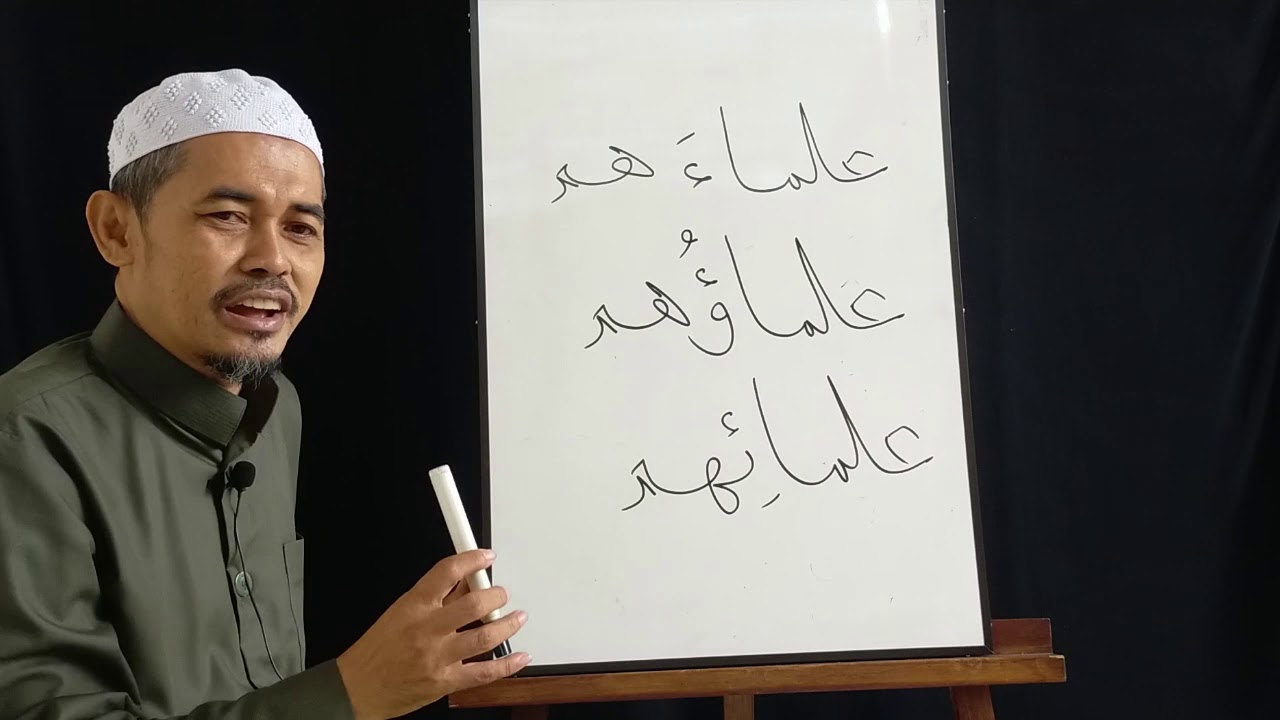 علماءَ هم
علماؤُهم
علمائِهم